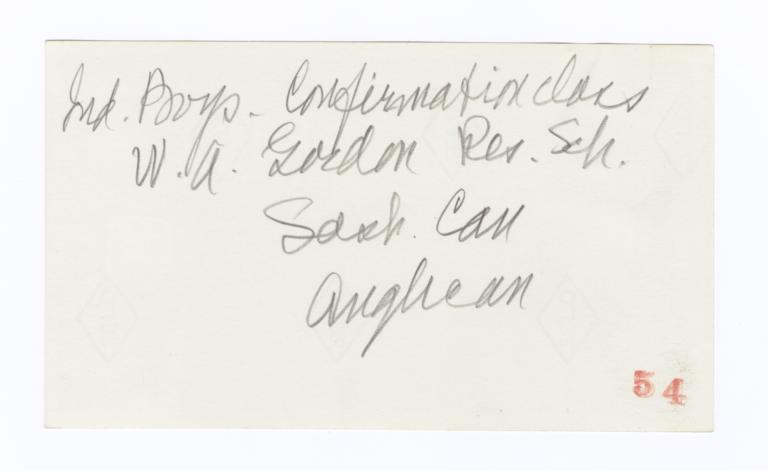 Ind. Boys. Confirmation class
W. A. Gordon Res. Sch.
Sask. Can
Anglican
54